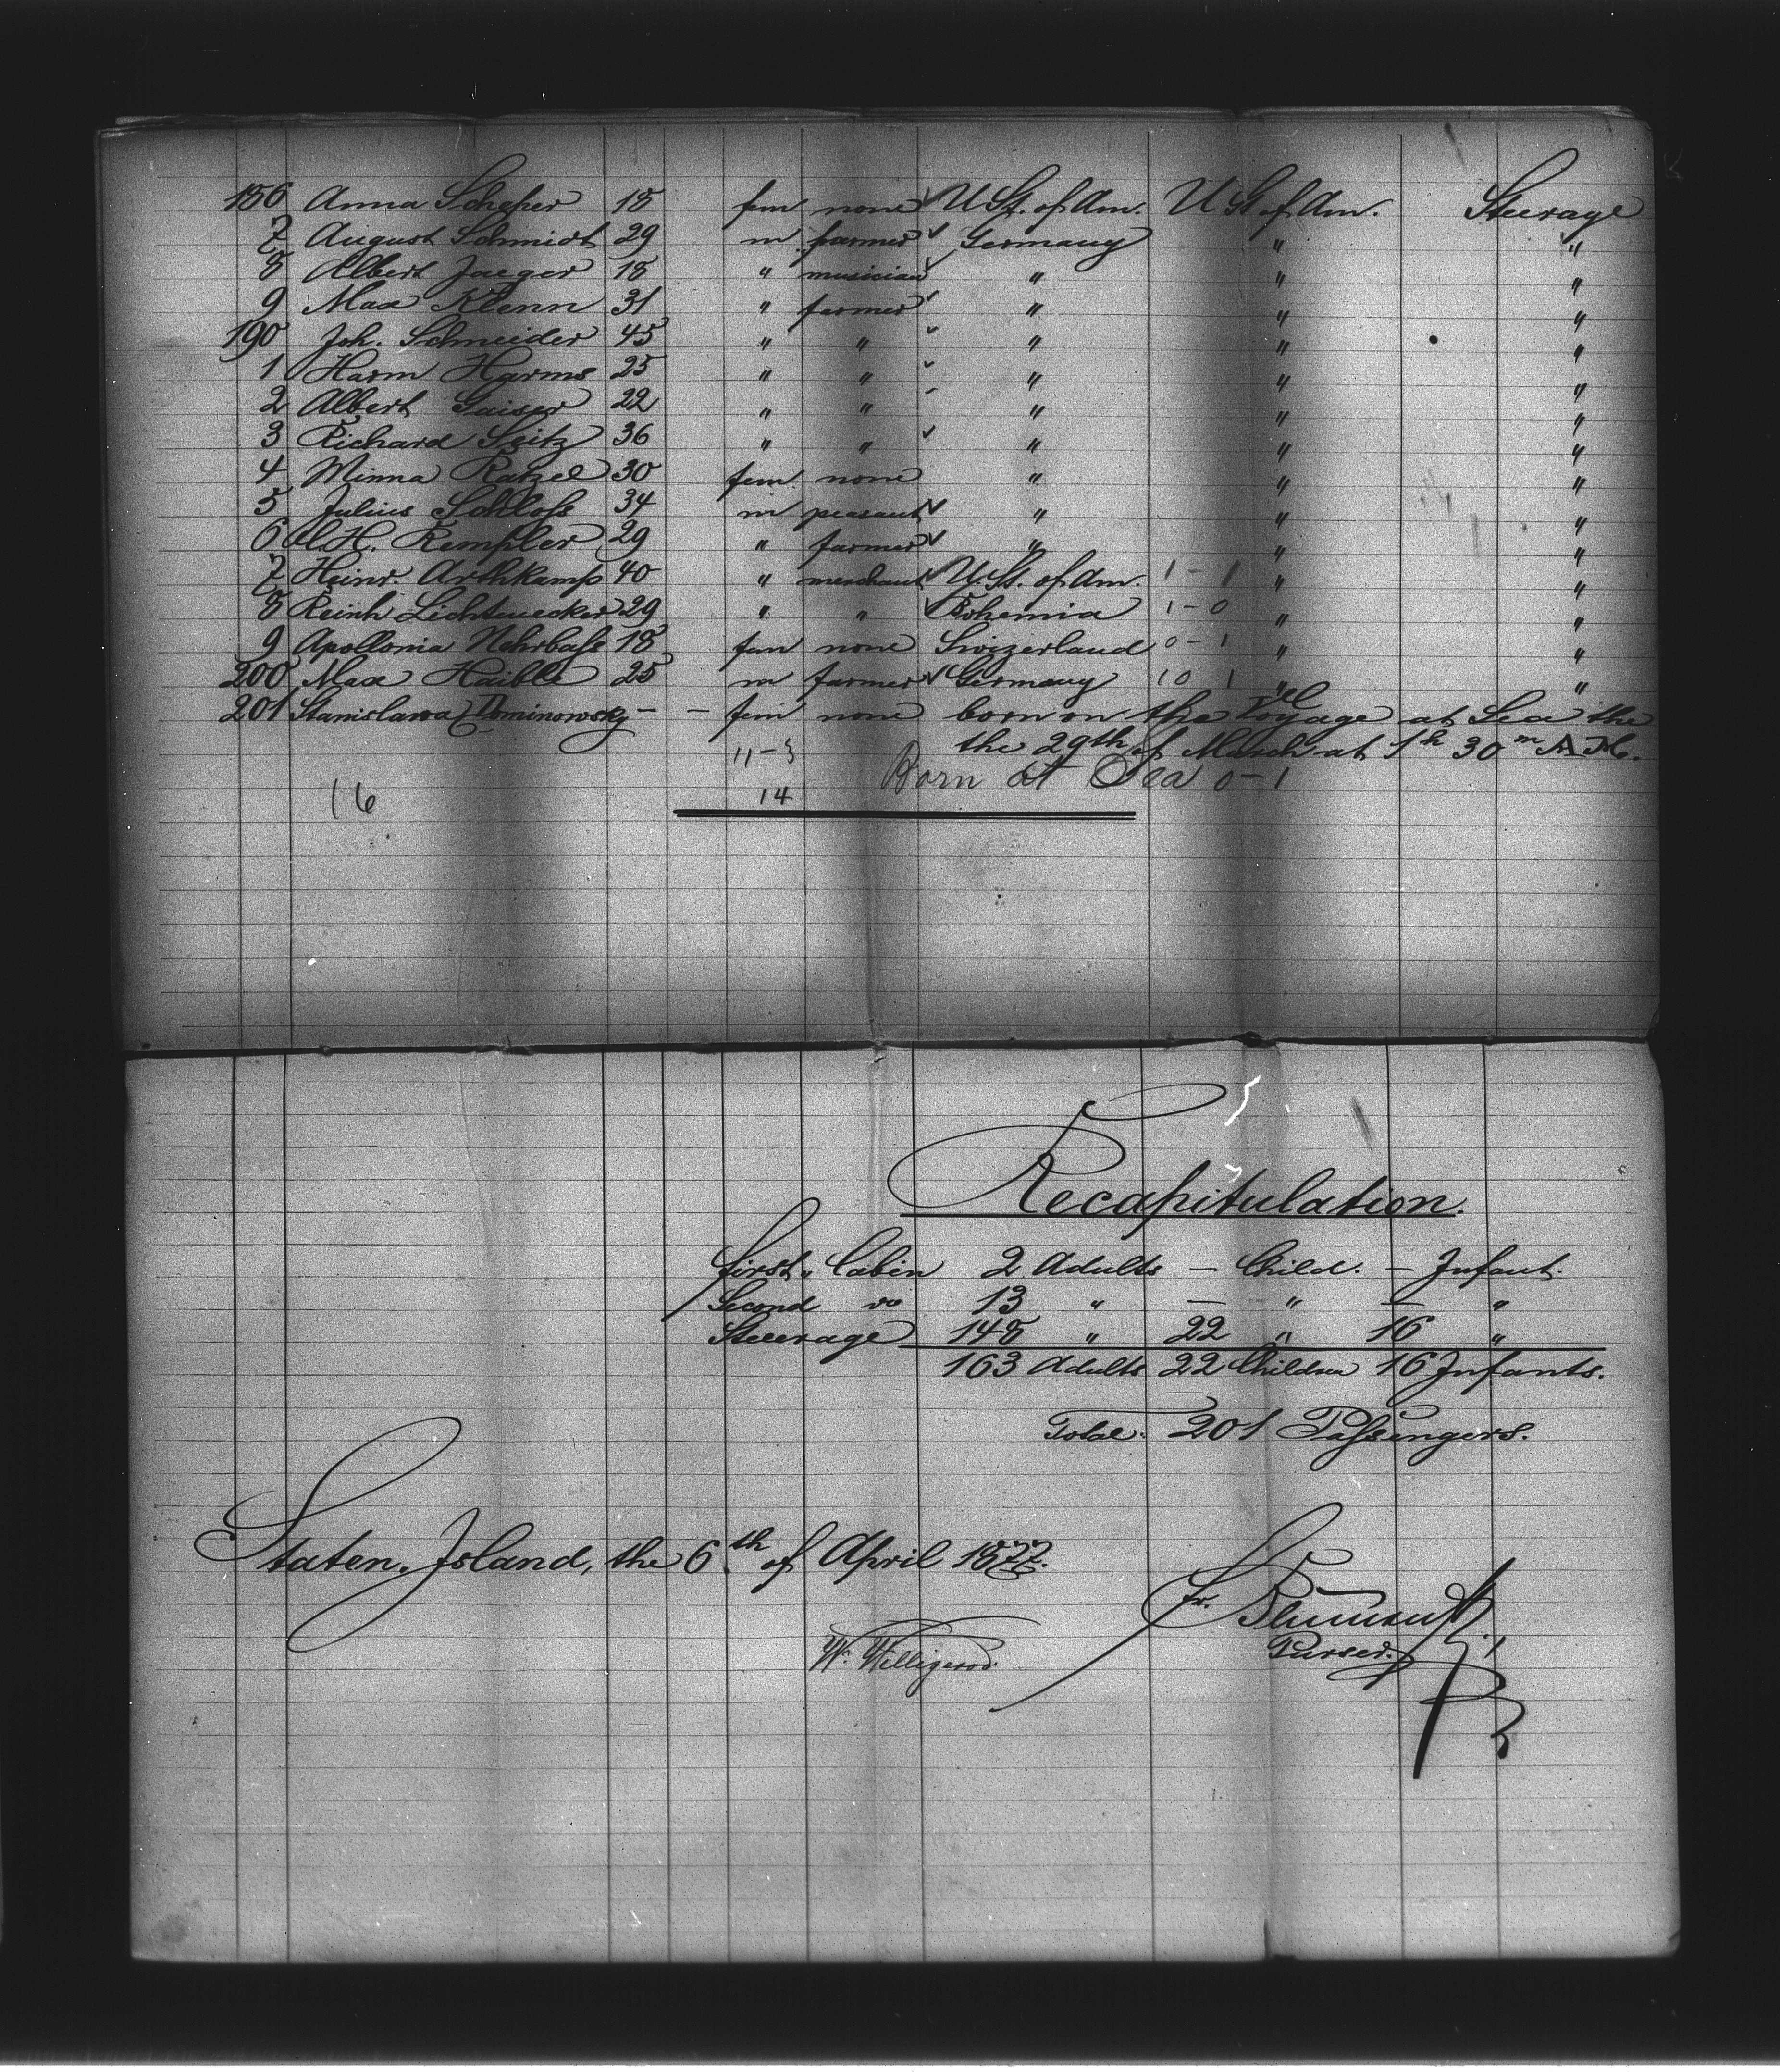 186 Anna Scheper 18 fem none U. St. of Am. U. St. of Am. Steerage
7 August Schmidt 29 m farmer Germany " "
8 Albert Jaeger 18 " musician " " "
9 Max Klenn 31 " farmer " " "
190 Joh. Schneider 45 " " " " "
1 Harm Harms 25 " " " " "
2 Albert Gaiser 22 " " " " "
3 Richard Seitz 36 " " " " "
4 Minna Ratzel 30 fem. none " " "
5 Julius Schloss 34 m peasant " " "
6 H. Kempler 29 " farmer " " "
7 Heinr. Arthkamp 40 " merchant U. St. of Am. 1 - 1 " "
8 Reinh Lichtenecker 29 " " Bohemia 1 - 0 " "
9 Apollonia Nohrbass 18 fem none Swizerland 0 - 1 " "
200 Max Haible 25 m farmer Germany 10 1 " "
201 Stanislawa Dominowsky - - fem none born on the Voyage at Sea the
the 29th of March at 1h 30m A.M.
11 - 3 Born at Sea 0 - 1
16 14
Recapitulation.
First " Cabin 2 Adults - Child. - Infant.
Second do 13 " - " - "
Steerage 148 " 22 " 16 "
163 Adults 22 Children 16 Infants.
Total. 201 Passengers.
Staten, Island, the 6th of April 1877.
W. Willigerod
Purser.